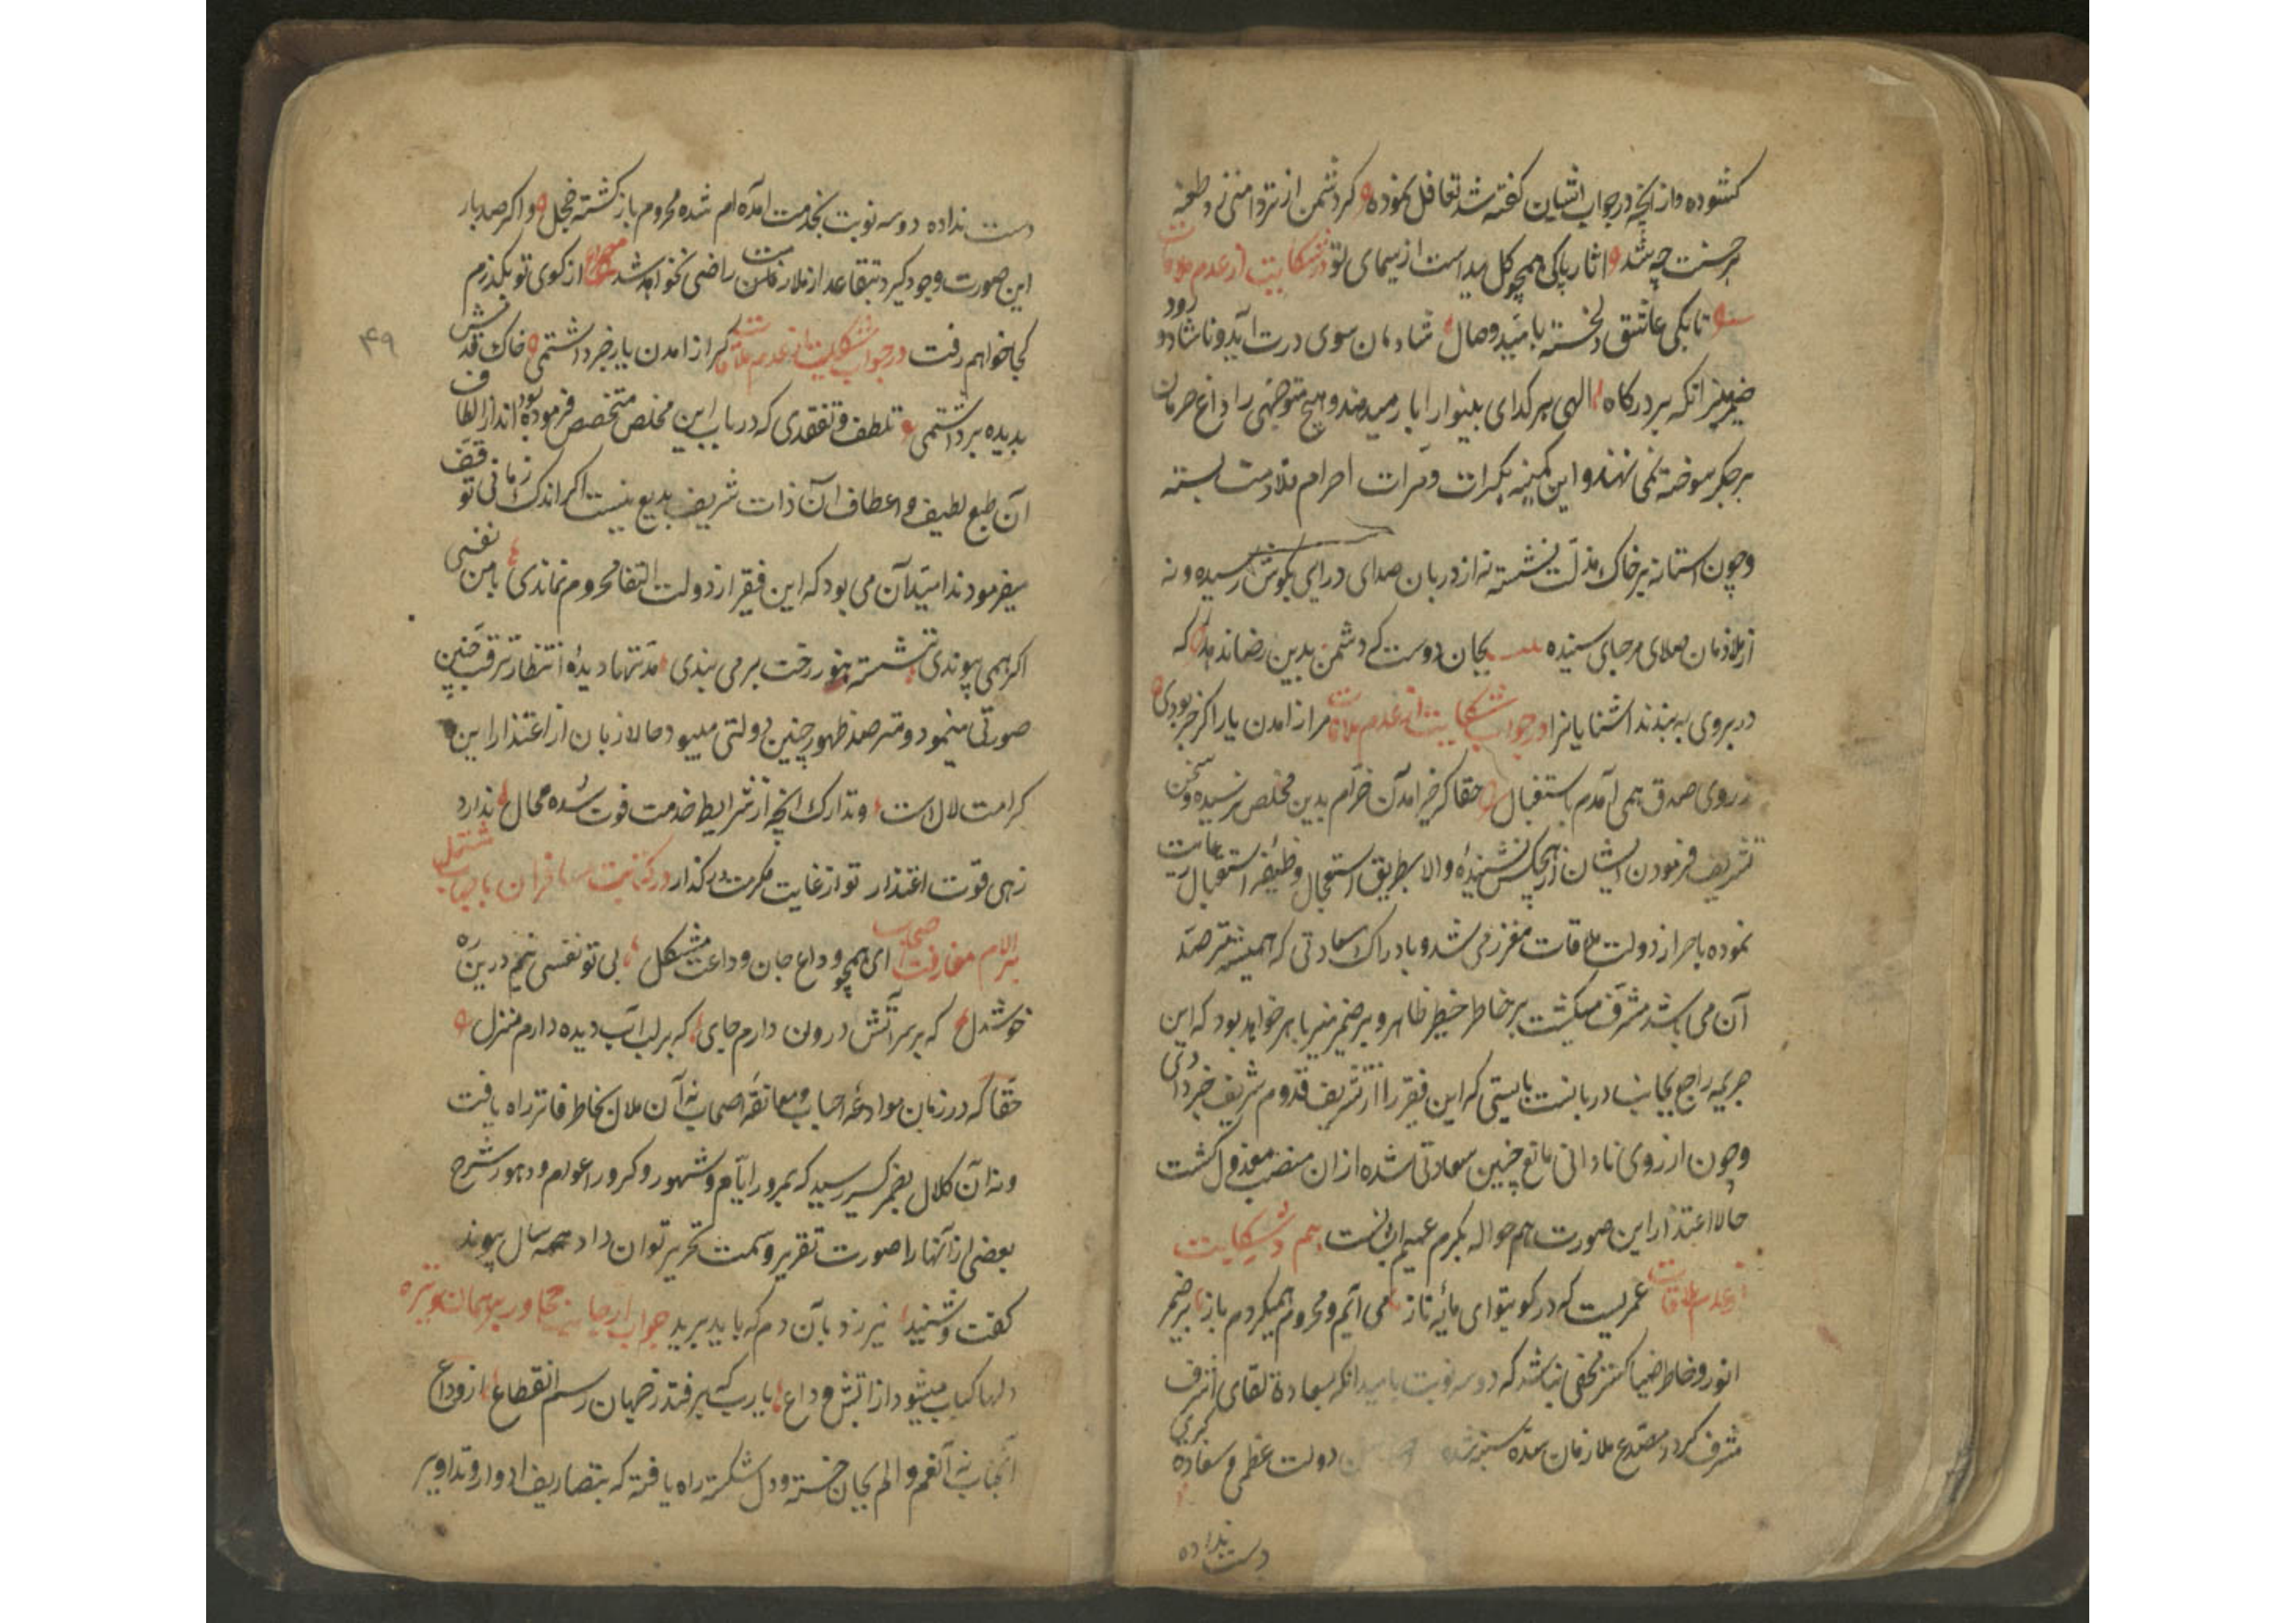 کشوده و از آنچه در جواب ایشان کفته شد تغافل نموده کر دشمن از تردامنی زد طعنه
بر حسنت چه شد اثار پاکی همچو کل پیداست از سیمای تو در شکایت از عدم ملاقات
تا بکی عاشق دلخسته بامید وصال شادمان سوی درت آید و ناشاد رود
انکه بر درکاه الهی هر کدای بینوا را بار میدهند و هیچ متوجهی را داغ حرمان
بر جکر سوخته نمی نهند و این کمینه بکرات و مرات احرام ملازمت بسته
و چون استانه بر خاک مذلت نشسته نه از دربان صدای درای بکوش رسیده و نه
از ملازمان صلای مرحبای شنیده بجان دوست که دشمن بدین رضا ندهد که
در بروی به بندند اشنایانرا در جواب شکایت از عدم ملاقات مرا از امدن یار اکر خبر بودی
ز روی صدق همی آمدم باستقبال حقا که خبر امدن خرام بدین مخلص نرسیده و سخن
تشریف فرمودن ایشان از هیچکس نشنیده و الا بطریق استعجال وظیفه استقبال رعایت
نموده باحراز دولت ملاقات معزز می شد و بادراک سعادتی که همیشه مترصد
آن می باشد مشرف میکشت بر خاطر خطیر ظاهر و بر ضمیر منیر باهر خواهد بود که این
جریمه راجع بجانب دربانست بایستی که این فقیر را از تشریف قدوم شریف خبر دادی
و چون از روی نادانی مانع چنین سعادتی شده از ان منصب معزول کشت
حالا اعتذار این صورت هم حواله بکرم عمیم ایشانست هم در شکایت
از عدم ملاقات عمریست که در کویتو ای مایه ناز می آیم و محروم همیکردم باز بر ضمیر
انور و خاطر ضیا کستر مخفی نباشد که دو سه نوبت بامید انکه بسعادة لقای اشرف
مشرف کردد مصدع ملازمان سده سنیه شده دولت عظمی و سعادة کبری
دست نداده
دست نداده دو سه نوبت بخدمت امده ام شده محروم باز کشته خجل و اکر صد بار
این صورت وجود کیرد بتقاعد از ملازمت راضی نخواهد شد از کوی تو بکذرم
کجا خواهم رفت در جواب شکایت از عدم ملاقات کر از امدن یار خبر داشتمی خاک قدمش
بدیده برداشتمی تلطف و تفقدی که در باب این مخلص متخصص فرموده بودند از الطاف
آن طبع لطیف و اعطاف آن ذات شریف بدیع نیست اکر اندک زمانی توقف
میفرمودند امید آن می بود که این فقیر از دولت التفا محروم نماندی با من نفسی
اکر همی پیوندی ننشسته هنوز رخت بر می بندی مدتها دیده انتظار ترقب چنین
صورتی مینمود و مترصد ظهور چنین دولتی میبود حالا زبان از اعتذار این
کرامت لال است و تدارک انچه از شرایط خدمت فوت شده مجال ندارد
زهی قوت اعتذار تو از غایت مکرمت در کذار در کتابت مسافران باحباب مشتمل
بر الام مفارقت اصحاب ای همچو وداع جان وداعت مشکل بی تو نفسی نیم درین ره
خوشدل که بر سر آتش درون دارم جای که بر لب آب دیده دارم منزل
حقا که در زمان موادعه احباب و معانقه اصحاب نه آن ملال بخاطر فاتر راه یافت
و نه آن کلال بضمیر کسیر رسید که بمرور ایام و شهور و کرور اعوام و دهور شرح
بعضی از آنها را صورت تقریر و سمت تحریر توان داد همه سال پیوند
کفت و شنید نیرزد بآن دم که باید برید جواب از جانب مجاور
دلها کباب میشود از اتش وداع یا رب که برفتد ز جهان رسم انقطاع از وداع
آنجناب نه آن غم و الم بجان خسته و دل شکسته راه یافته که بتصاریف ادوار و تداویر
۴۹